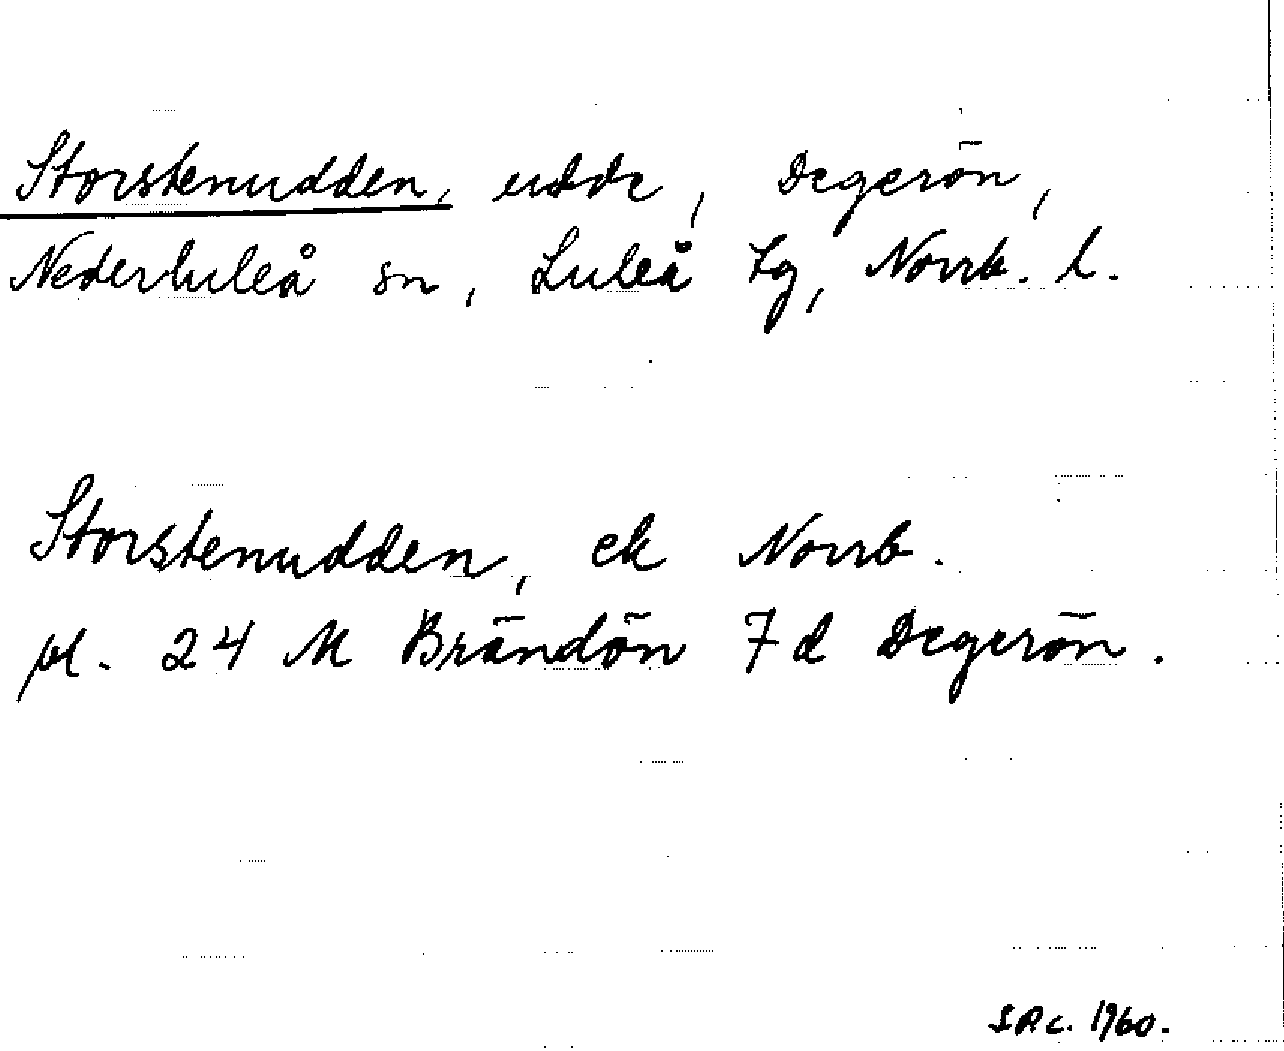 Storstenudden, udde, Degerön,
Nederluleå sn, Luleå tg, Norrb. l.
Storstenudden, ek Norrb.
pl. 24 M Brändön 7d Degerön.
1960.